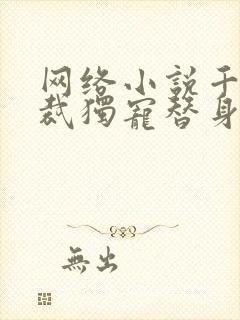 网络小説千
裁獨寵替身
無出